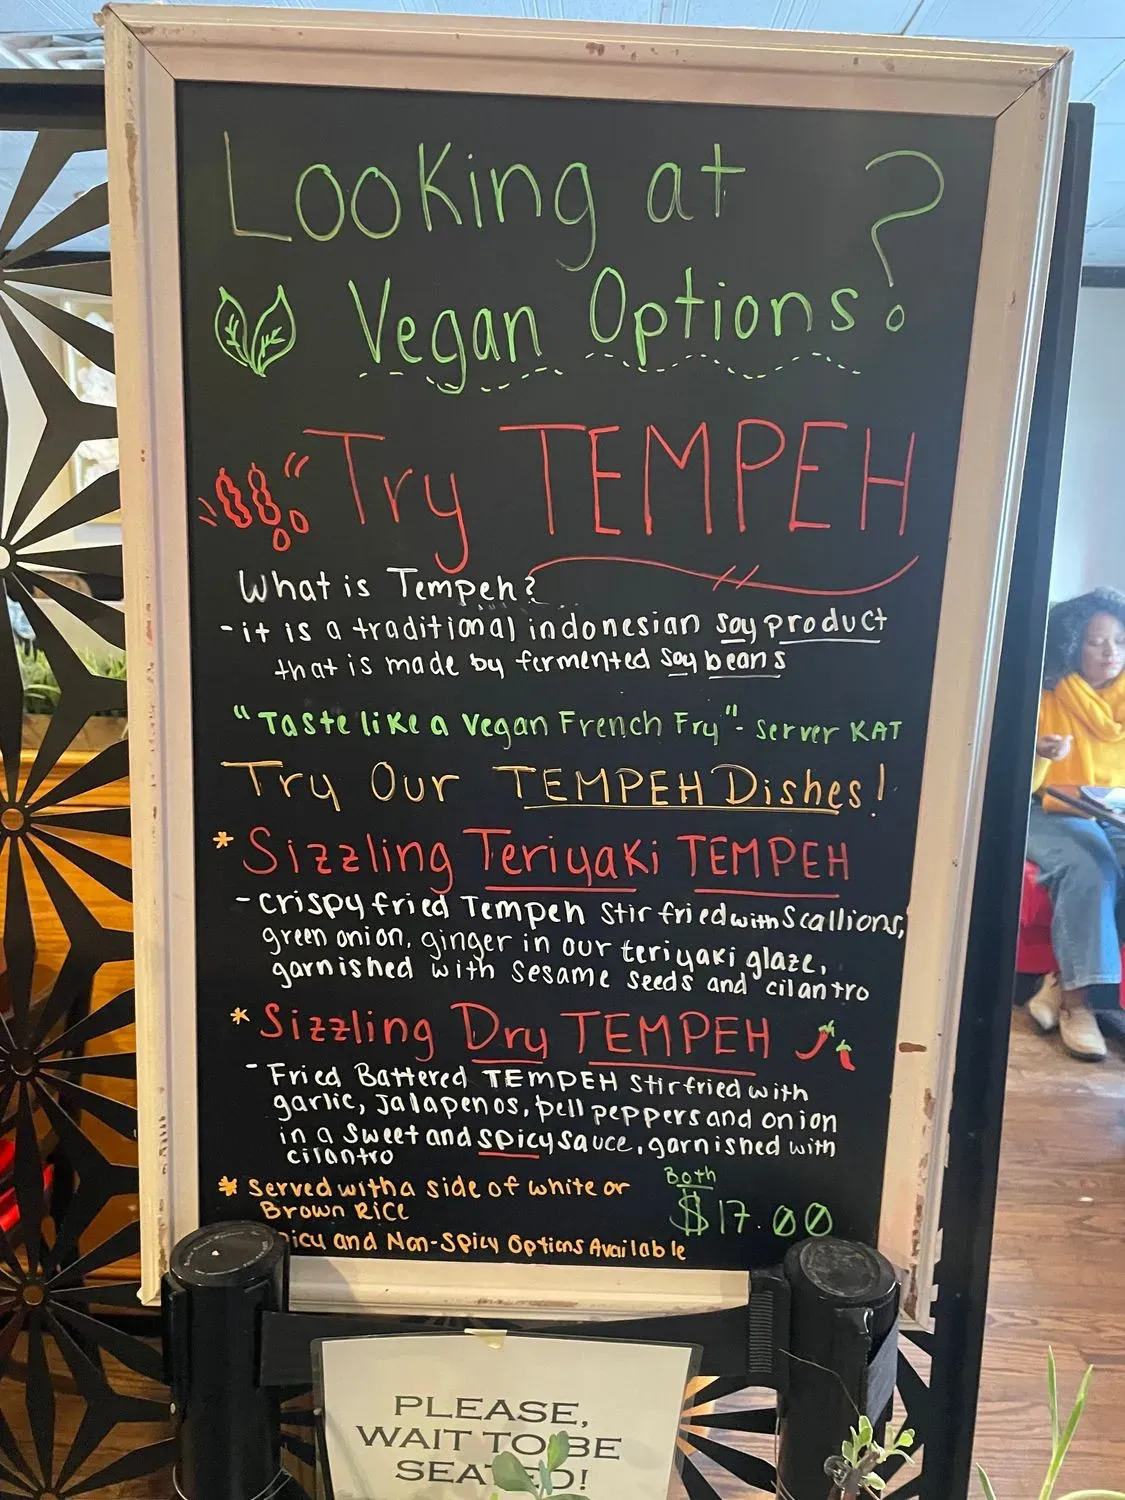 Looking at ?
Vegan Options
Try TEMPEH
What is Tempeh?
- it is a traditional indonesian soy product
that is made by fermented soy beans
"Taste like a Vegan French Fry" - server KAT
Try Our TEMPEH Dishes!
* Sizzling Teriyaki TEMPEH
- crispy fried Tempeh stir fried with scallions,
green onion, ginger in our teriyaki glaze,
garnished with sesame seeds and cilantro
* Sizzling Dry TEMPEH
- Fried Battered TEMPEH stir fried with
garlic, Jalapenos, bell peppers and onion
in a sweet and spicy sauce, garnished with
cilantro
* served with a side of white or
Brown Rice
Both
$17.00
and Non-Spicy Options Available
PLEASE,
WAIT TO BE
SEATED!